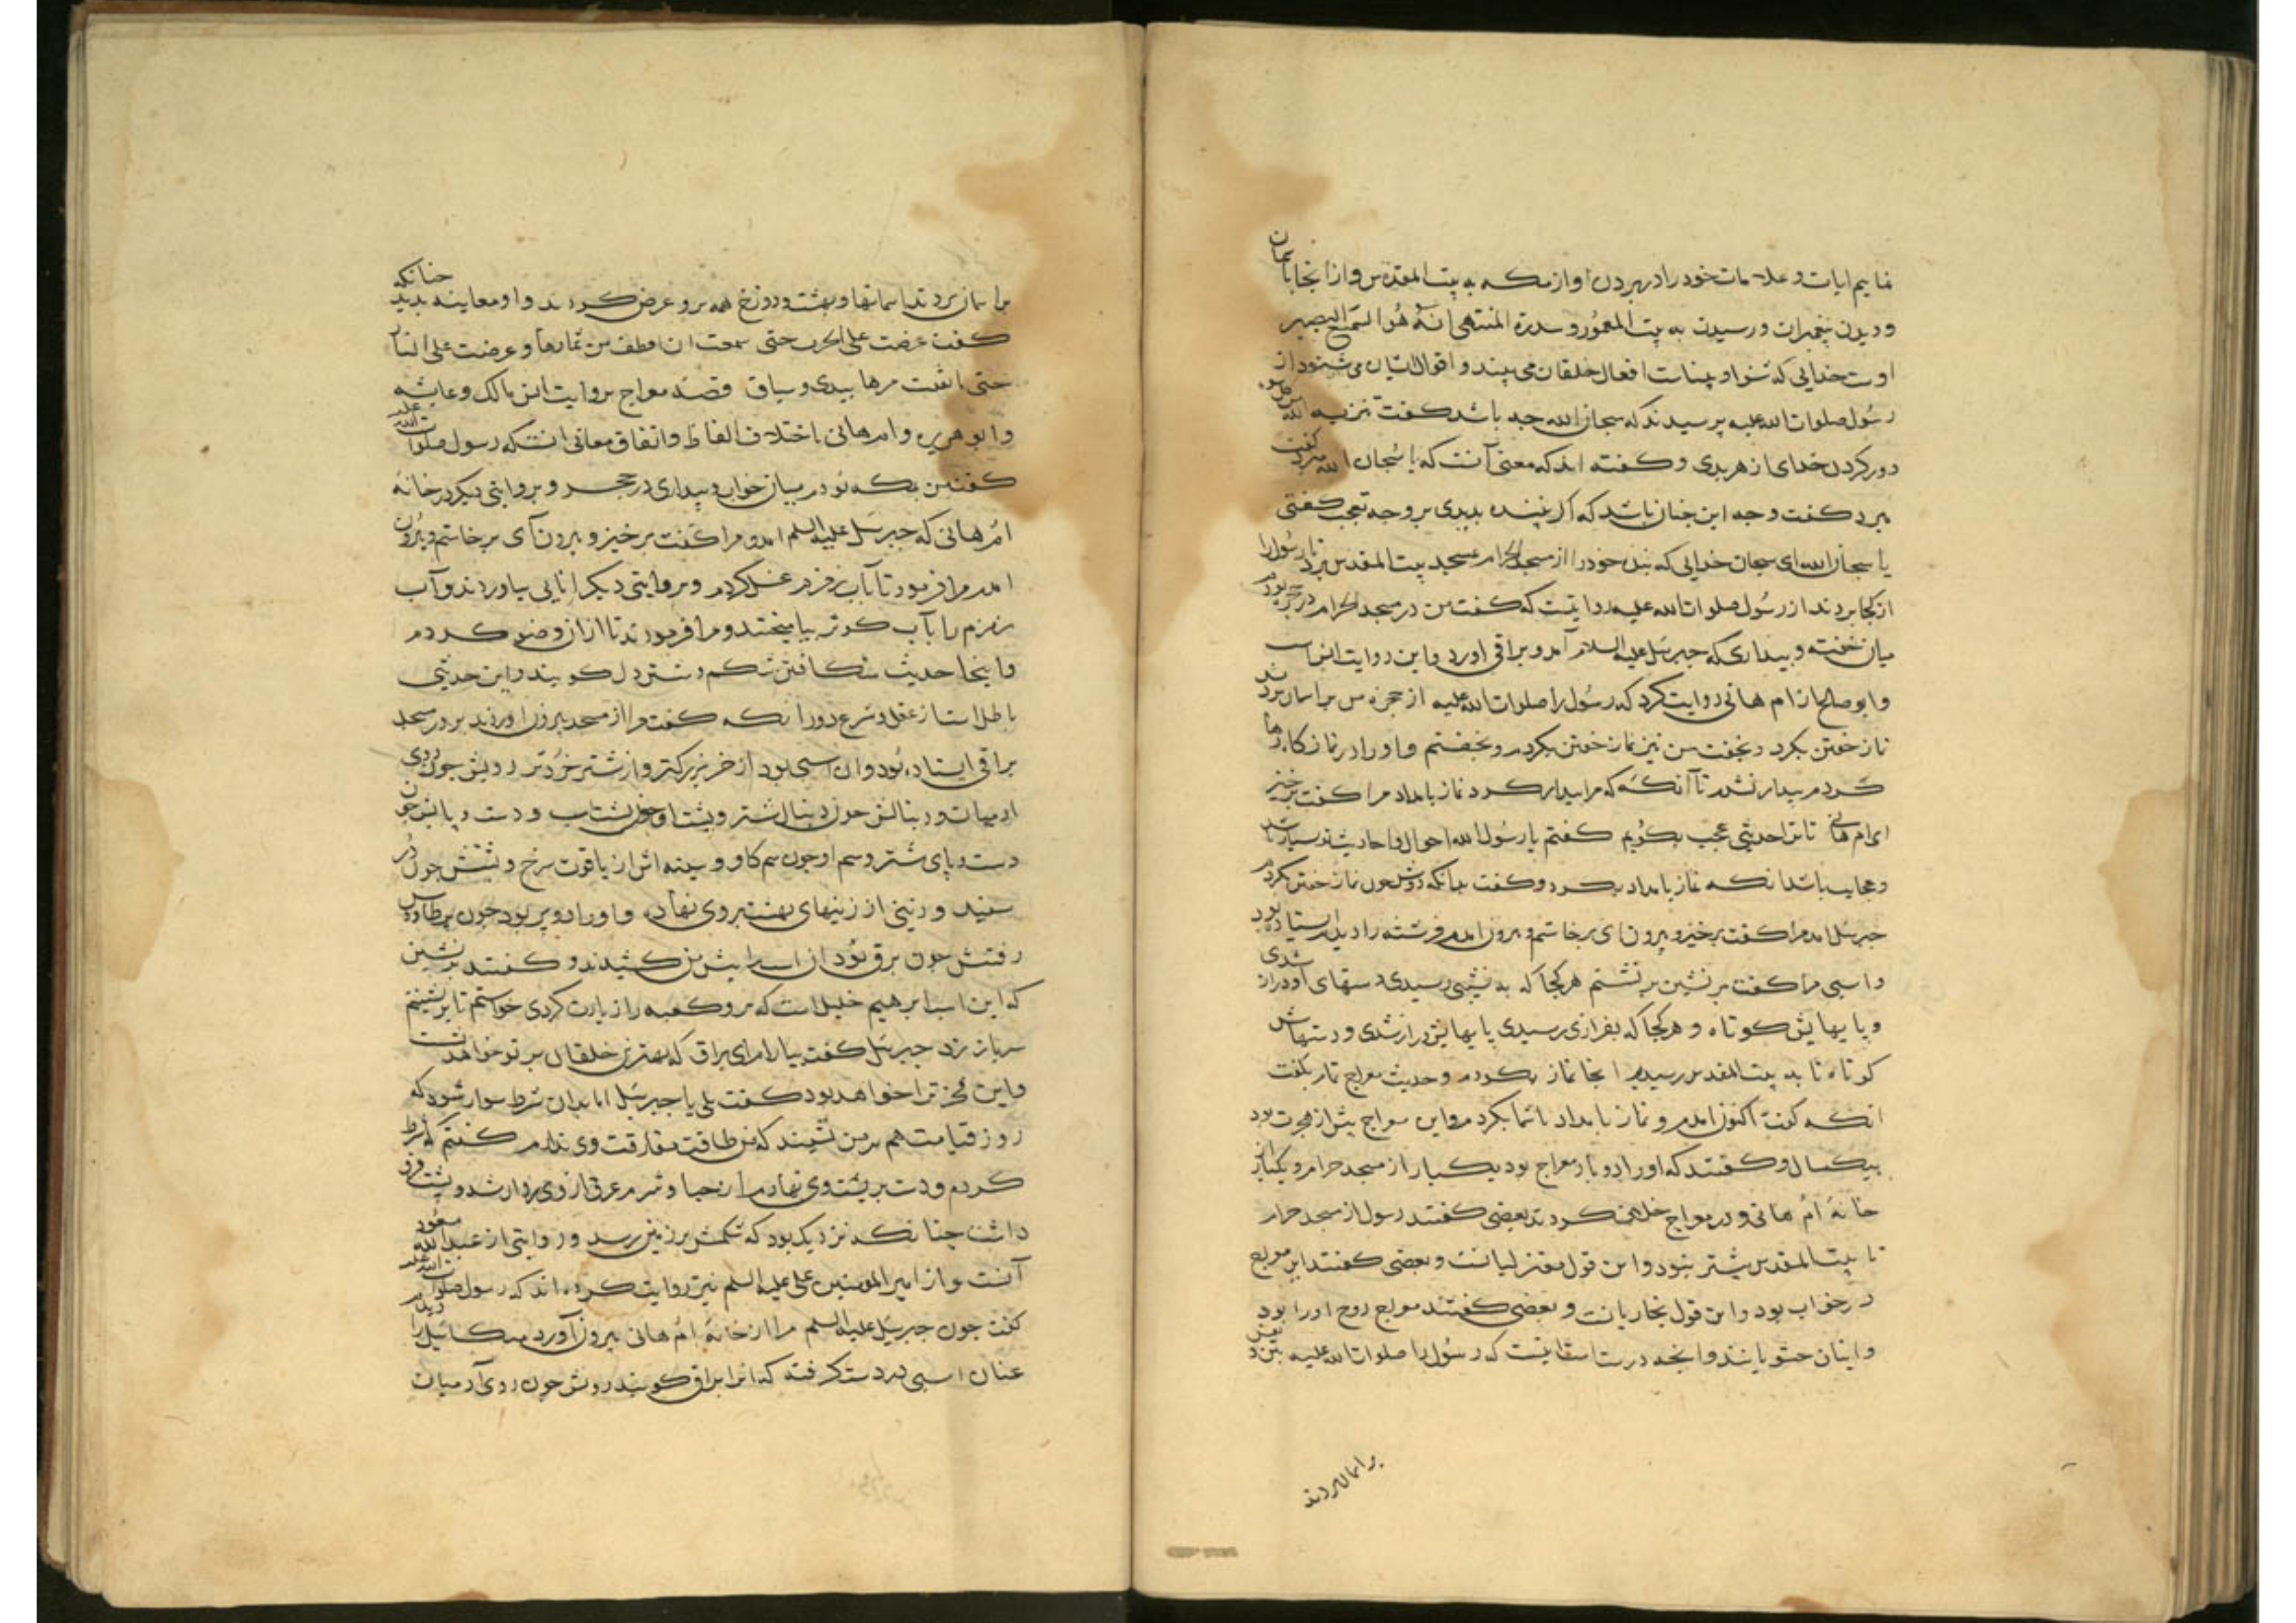 نمایم ایات و علامات خود را در بردن او از مکه به بیت المقدس و از انجا باسمان
و دیدن پیغمبران و رسیدن به بیت المعمور و سدرة المنتهی انه هو السمیع البصیر
اوست خدایی که شنوا و بیناست افعال خلقان می بیند و اقوال ایشان می شنود از
رسول صلوات الله علیه پرسیدند که سبحان الله چه باشد کفت تنزیه الله
دور کردن خدای از هر بدی و کفته اند که معنی آنست که یا سبحان الله
مرد کفت وجه این چنان باشد که اکر بیننده بدیدی بر وجه تعجب کفتی
یا سبحان الله ای سبحان خدایی که بنده خود را از مسجد الحرام بمسجد بیت المقدس برد تا رسول را
از کجا بردند از رسول صلوات الله علیه روایتست که کفت من در مسجد الحرام در حجر بودم
میان خفته و بیدار که جبرئیل علیه السلام آمد و براقی اورد و این روایت انس است
و ابو صالح از ام هانی روایت کرد که رسول را صلوات الله علیه از حجره من بر اسمان بردند
نماز خفتن بکرد و بخفت من نیز نماز خفتن بکردم و بخفتم و او را در نماز کاه رها
کردم بیدار نشدم تا آنکه که مرا بیدار کرد نماز بامداد مرا کفت برخیز
ای ام هانی تا ترا حدیثی عجب بکویم کفتم یا رسول الله احوال و احادیث تو بسیار باشد
و عجایب باشد انکه نماز بامداد بکرد و کفت بدانکه دوش چون نماز خفتن بکردم
جبرئیل امد مرا کفت برخیز و بیرون ای برخاستم و بیرون امدم فرشته را دیدم ایستاده بود
و اسبی مرا کفت بر نشین بر نشستم هر کجا که به نشیبی رسیدی دستهای او دراز شدی
و پایهایش کوتاه و هر کجا که بفرازی رسیدی پایهایش دراز شدی و دستهاش
کوتاه تا به بیت المقدس رسیدم انجا نماز بکردم و حدیث معراج تمام بکفت
انکه کفت اکنون امدم و نماز بامداد با شما بکردم و این معراج پیش از هجرت بود
بیکسال و کفتند که او را دو بار معراج بود یکبار از مسجد حرام و یکبار از
خانه ام هانی و در معراج خلاف کردند بعضی کفتند رسول از مسجد حرام
تا بیت المقدس بیشتر نبود و این قول معتزلیانست و بعضی کفتند این معراج
در خواب بود و این قول نجاریانست و بعضی کفتند معراج روح او را بود
و اینان حشویانند و انچه درست است انست که رسول را صلوات الله علیه
بر اسمان بردند
بر اسمان بردند تا اسمانها و بهشت و دوزخ همه بر و عرض کردند و او معاینه بدید چنانکه
کفت عرضت علی حتی هممت ان اقطف من ثمارها و عرضت علی النار
حتی بیدی و سیاق قصه معراج بروایت انس مالک و عایشه
و ابو هریره و ام هانی باختلاف الفاظ و اتفاق معانی انستکه رسول صلوات الله علیه
کفت من بمکه بودم میان خواب و بیداری در حجر و بروایتی دیکر در خانه
ام هانی که جبرئیل علیه السلم امد و مرا کفت برخیز و بیرون آی برخاستم و بیرون
امدم مرا فرمود تا بآب زمزم غسل کردم و بروایتی دیکر انایی بیاوردند و آب
زمزم را بآب کوثر بیامیختند و مرا فرمودند تا از ان وضو کردم
و اینجا حدیث شکافتن شکم و شستن دل کویند و این حدیثی
باطل است از عقل و شرع دور انکه کفت مرا از مسجد بیرون اوردند بر در مسجد
براقی ایستاده بود و ان اسبی بود از خر بزرکتر و از شتر خردتر رویش چون روی
ادمیان و دنبالش چون دنبال شتر و پشت او چون پشت اسب و دست و پایش چون
دست و پای شتر و سم او چون سم کاو و سینه اش از یاقوت سرخ و پشتش چون در
سفید و زینی از زینهای بهشت بر وی نهاده و او را دو پر بود چون پر طاوس
رفتنش چون برق بود ان اسب را پیش من کشیدند و کفتند بر نشین
که این اسب ابرهیم خلیل است که برو کعبه را زیارت کردی خواستم تا بر نشینم
سر باز زد جبرئیل کفت بیارام ای براق که بهترین خلقان بر تو خواهد نشست
و این فخر ترا خواهد بود کفت بلی یا جبرئیل اما بدان شرط سوار شود که
روز قیامت هم بر من نشیند که من طاقت مفارقت وی ندارم کفتم که شرط
کردم و دست بر پشت وی نهادم از حیا و شرم عرق از وی روان شد و پشت فرو
داشت چنانکه نزدیک بود که شکمش بر زمین رسد و روایتی از عبد الله مسعود
آنست و از امیر المومنین علی علیه السلم نیز روایت کرده اند که رسول صلوات الله علیه
کفت چون جبرئیل علیه السلم مرا از خانه ام هانی بیرون آورد میکائیل را دیدم
عنان اسبی در دست کرفته که انرا براق کویند رویش چون روی آدمیان